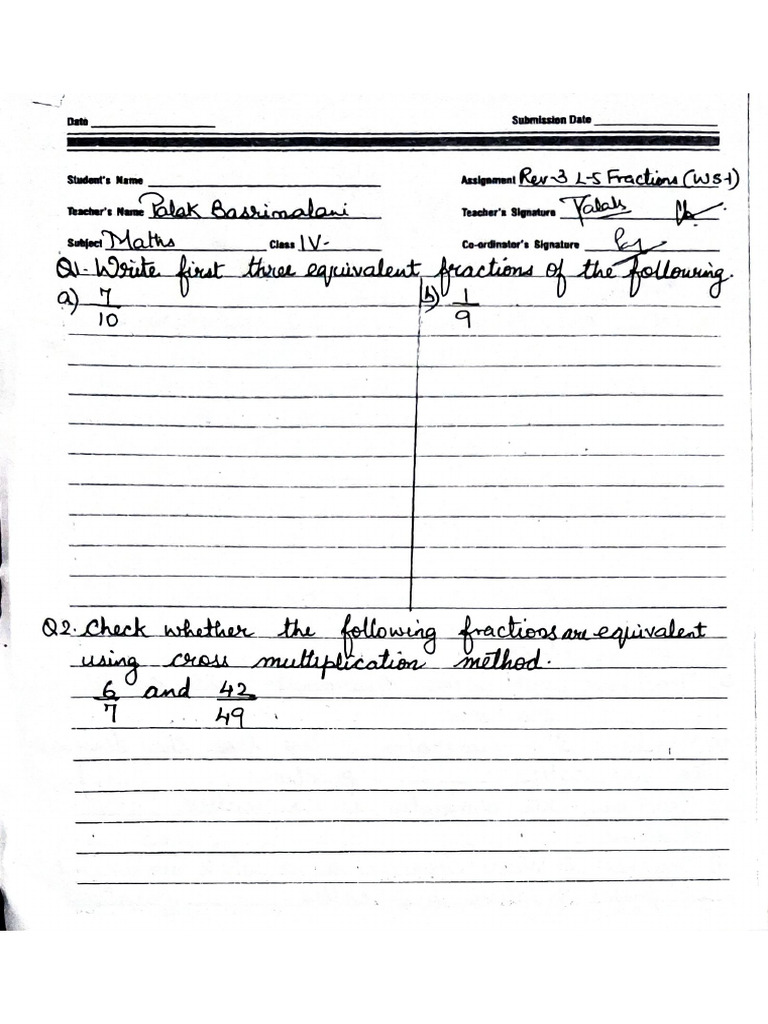 Date Submission Date
Student's Name Assignment Rev-3 L-5 Fractions (WS-1)
Teacher's Name Palak Basrimalani Teacher's Signature Palak
Subject Maths Class IV- Co-ordinator's Signature
Q1- Write first three equivalent fractions of the following.
a) 7/10 b) 1/9
Q2. Check whether the following fractions are equivalent
using cross multiplication method.
6/7 and 42/49.